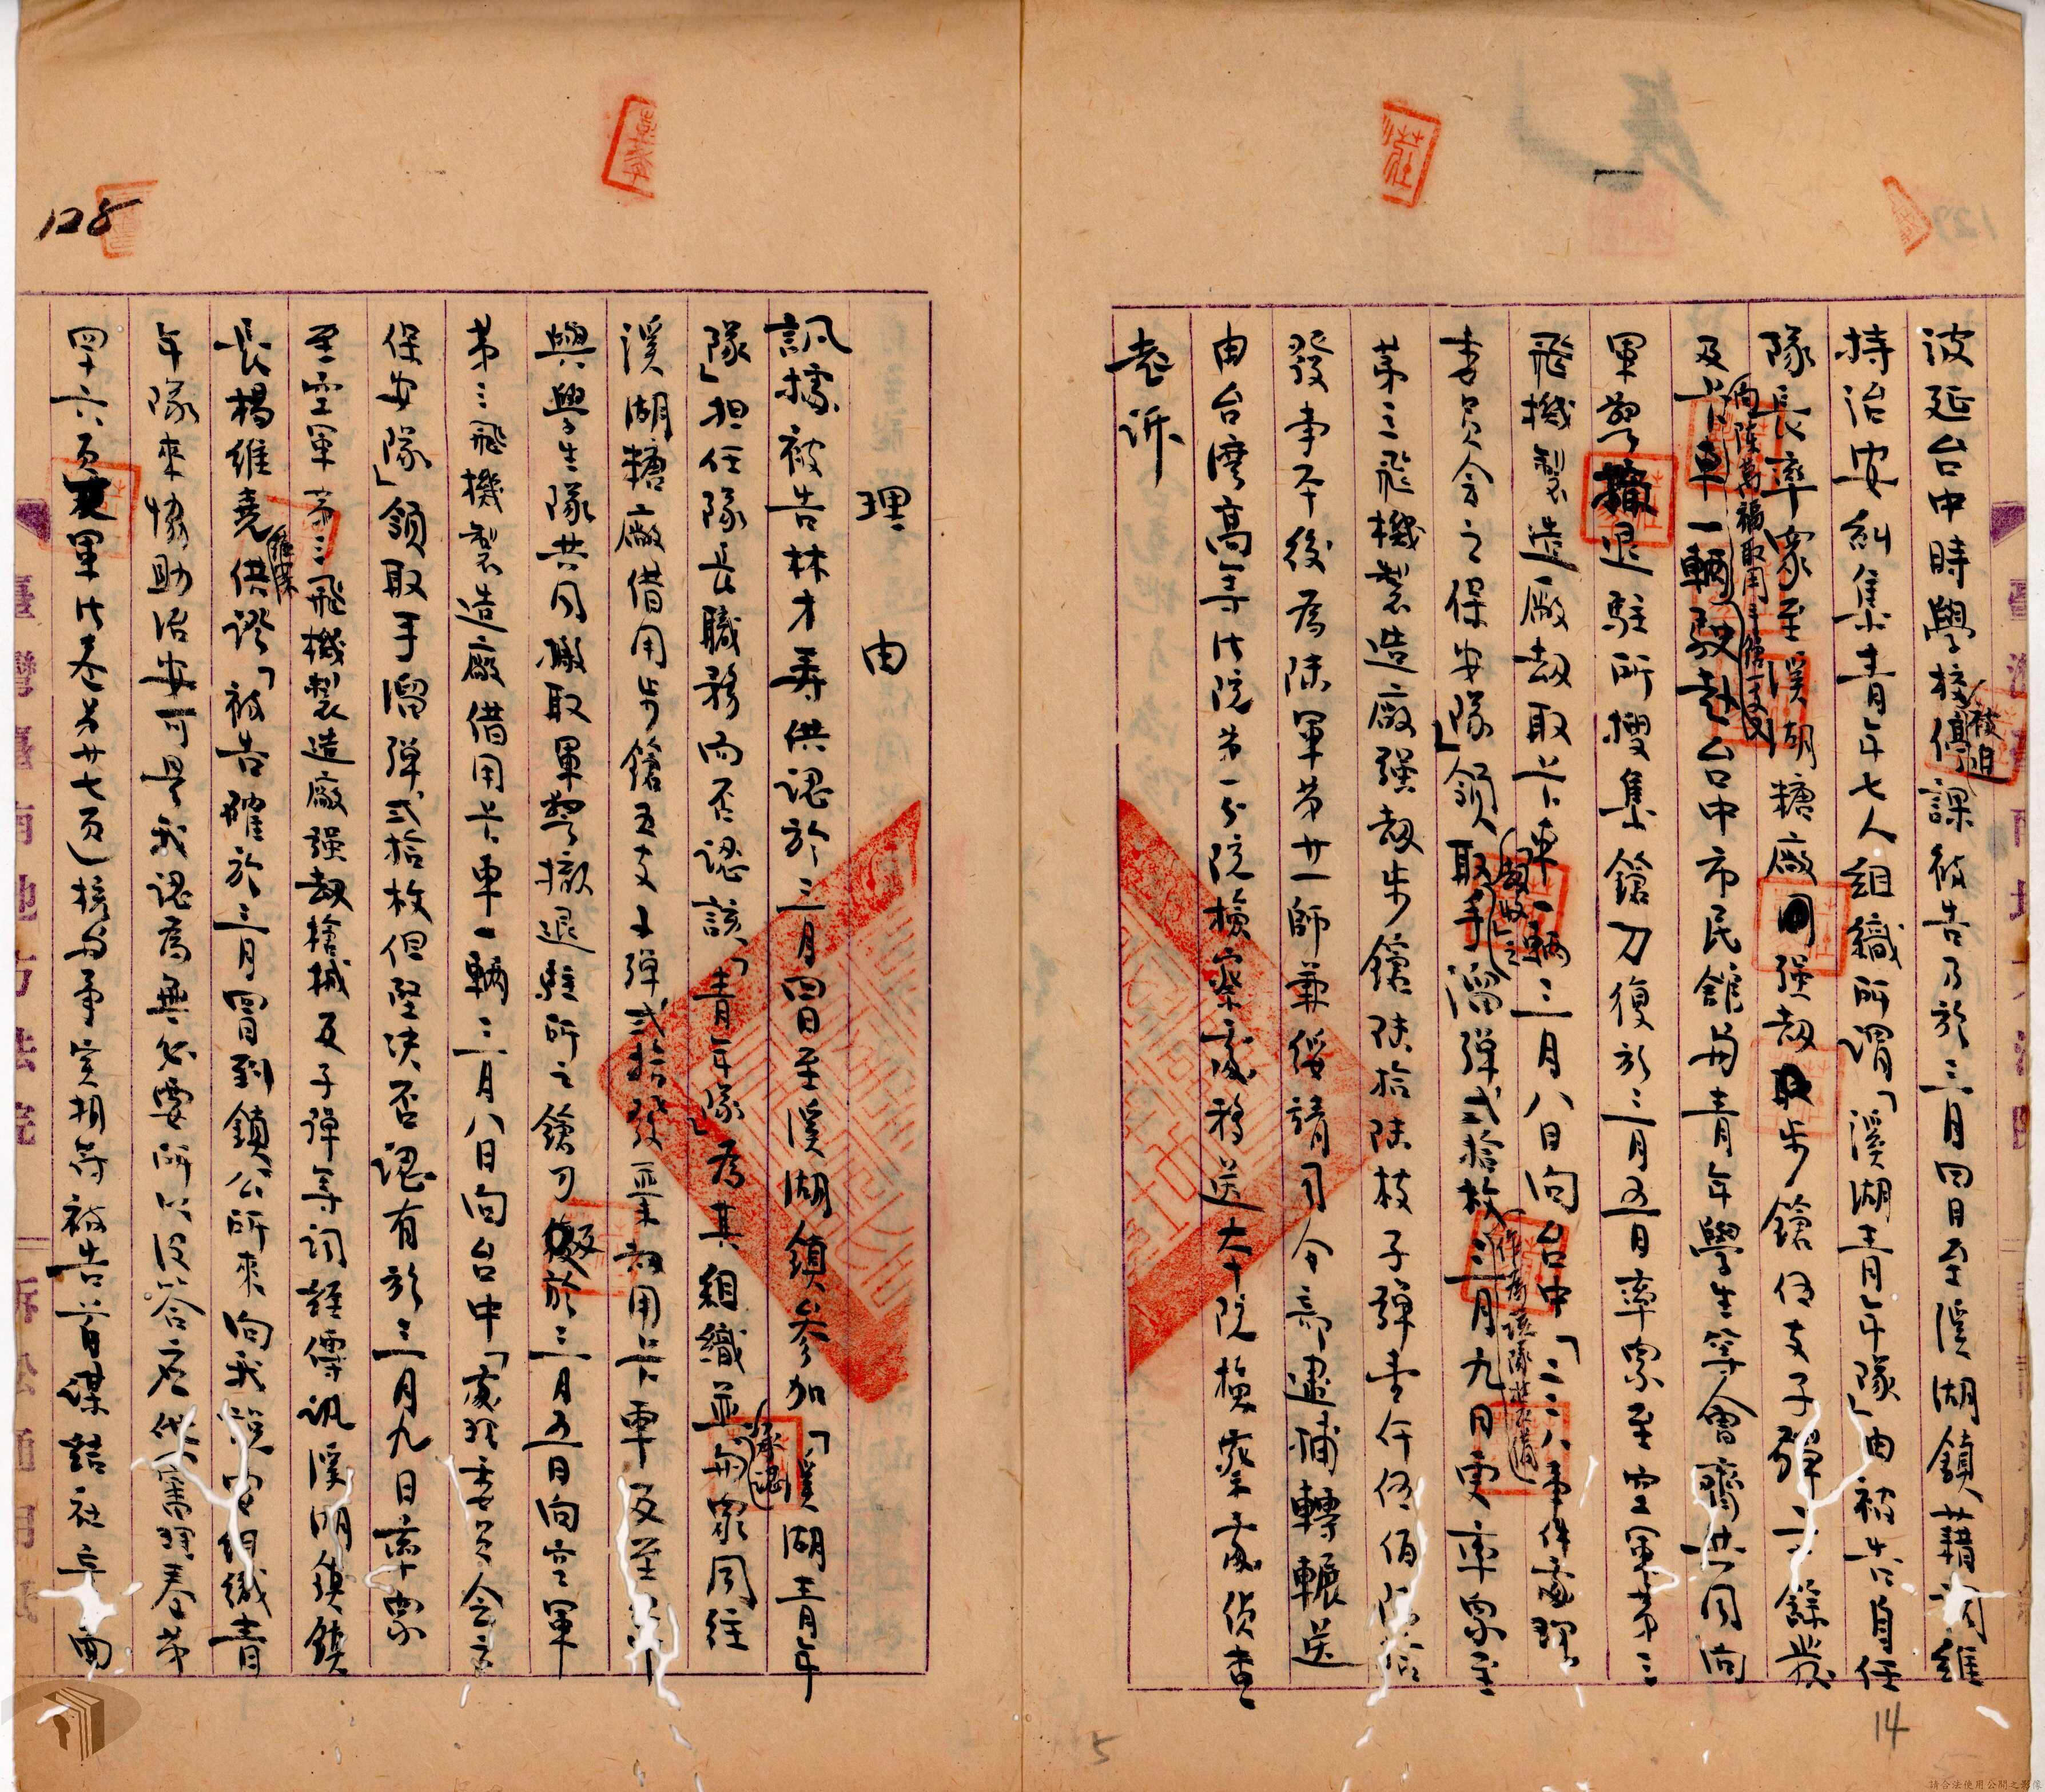 波延台中時學校停課被告乃於三月四日至溪湖鎮藉詞維
被迫
持治安糾集青年七人組織所謂「溪湖青年隊」由被告自任
隊長率眾至溪湖糖廠強刼取步鎗伍支子彈二十餘發
向陳萬福取用手鎗一支
及卡車一輛駛赴台中市民舘與青年學生等會齊共同向
軍警撤退駐所搜集鎗刀復於三月五日率眾至空軍第三
飛機製造廠刼取卡車一輛三月八日向台中「二二八事件處理
委員會之保安隊」領取手溜彈弍拾枚三月九日更率眾至
作為該隊
第三飛機製造廠強刼步鎗陸拾陸枝子彈壹仟伍佰陸拾
發事平後為陸軍第廿一師兼綏靖司令部逮捕轉輾送
由台灣高等法院第一分院檢察處移送本院檢察處偵查
起訴
理由
訊據被告林才壽供認於三月四日至溪湖鎮參加「溪湖青年
隊」担任隊長職務而否認該「青年隊」為其組織並與眾同往
承認
溪湖糖廠借用步鎗五支子彈弍拾發並利用卡車及至
與學生隊共同搬取軍警撤退駐所之鎗刀及於三月五日向空軍
第三飛機製造廠借用卡車一輛三月八日向台中「處理委員會之
保安隊」領取手溜彈弍拾枚但堅决否認有於三月九日率眾
至空軍第三飛機製造廠強刼鎗械及子彈等詞經傳訊溪湖鎮鎮
長楊維堯供證「被告確於三月間到鎮公所來向我說要組織青
年隊來協助治安可是我認為無必要所以沒答應他審理卷第
四十六頁軍法卷第廿七頁)核與事實相符被告首謀結社
128
14
5
請合法使用公開之影像